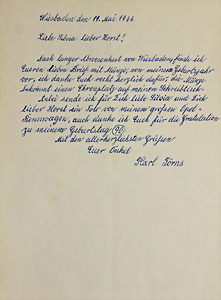 Wiesbaden den 11. Mai 1966
Liebe Silvia lieber Horst!
Nach langer Abwesenheit von Wiesbaden, finde ich
Eueren lieben Brief mit Münze, von meinem Geburtsjahr
vor, ich danke Euch recht herzlich dafür die Münze
bekommt einen Ehrenplatz auf meinem Schreibtisch.
Anbei sende ich für Dich liebe Silvia und Dich
lieber Horst ein Foto von meinem großen Opel-
Rennwagen, auch danke ich Euch für die Gratulation
zu meinem Geburtstag
Mit den allerherzlichsten Grüßen
Euer Onkel
Karl Jörns